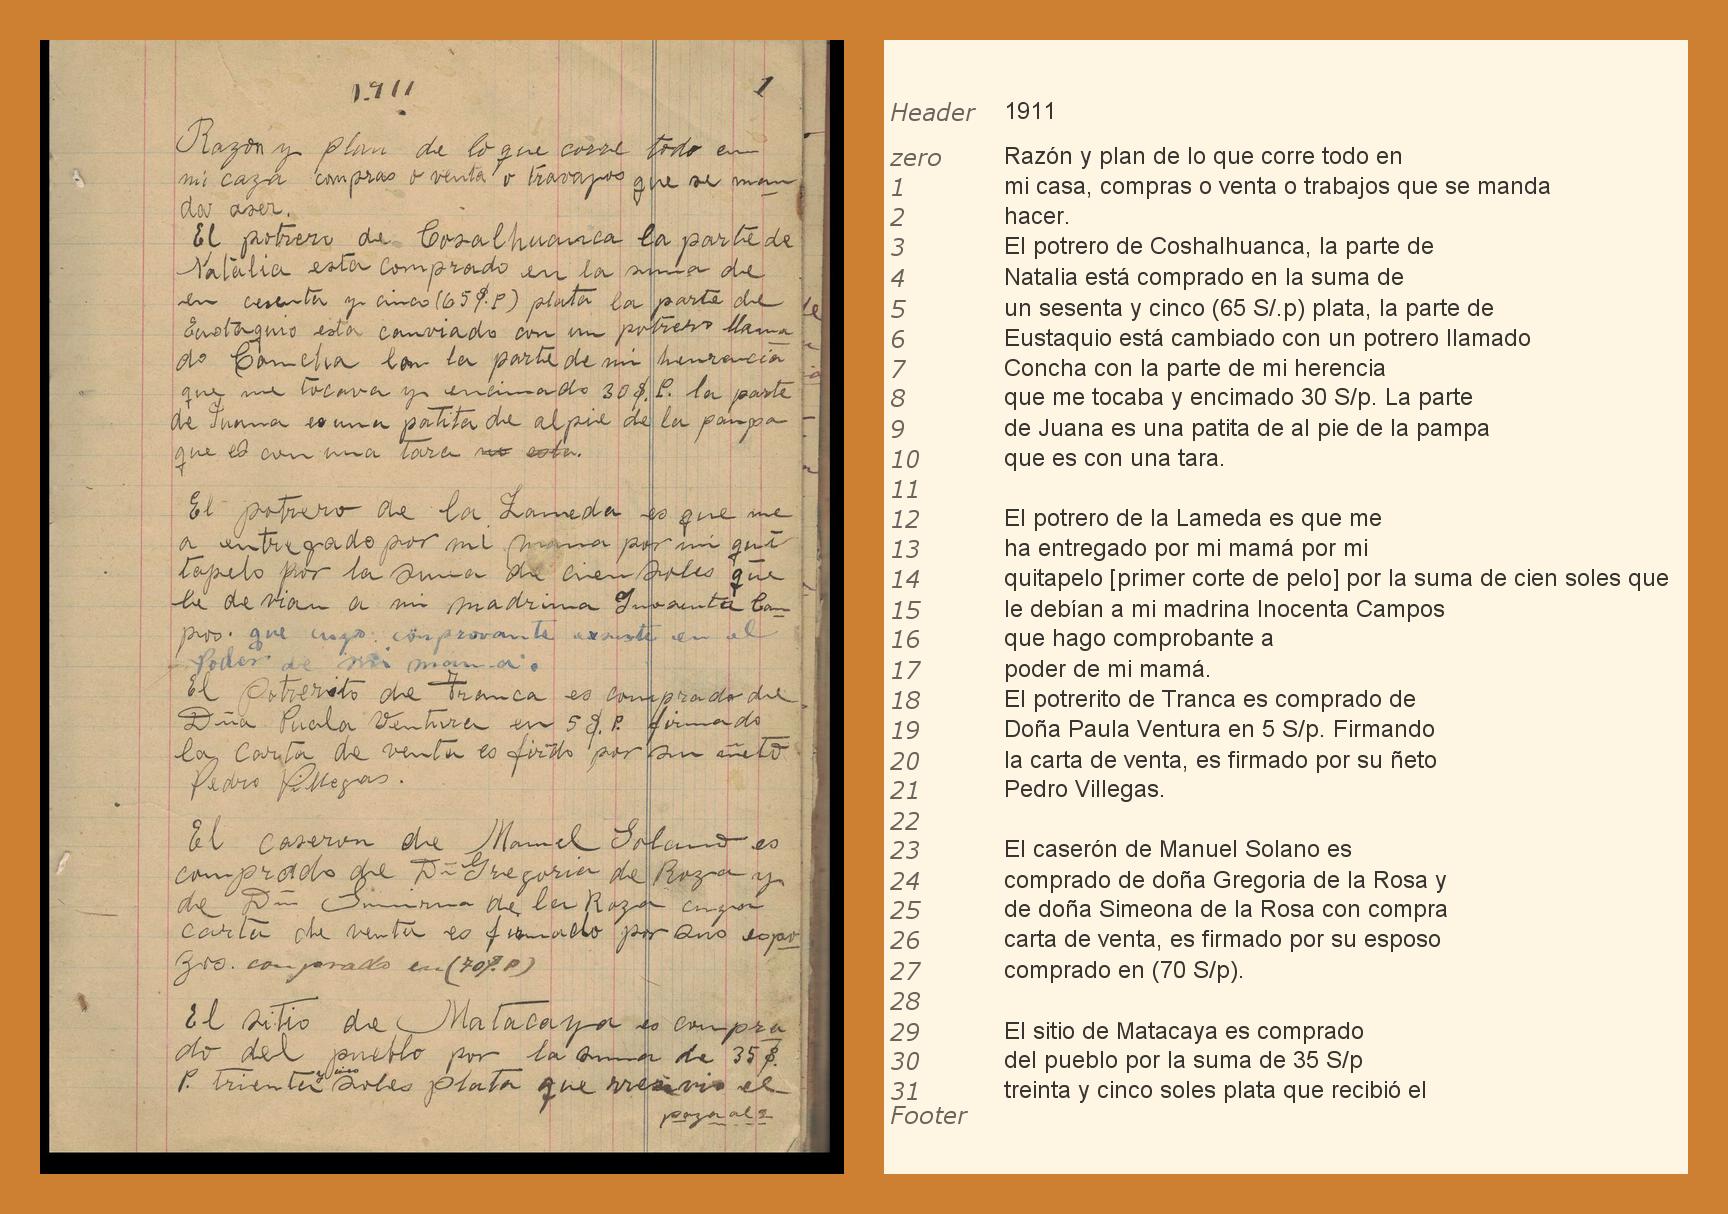 1911
1
Razon y plan de lo que corre todo en
mi caza compras o venta o travajos que se man
da aser.
El potrero de Cosalhuanca la parte de
Natalia esta comprado en la suma de
en cesenta y cinco (65 $.P) plata la parte de
Eustaquio esta canviado con un potrero llama
do Concha con la parte de mi henrancia
que me tocava y encimado 30 $. P. la parte
de Juana es una patita de al pie de la panpa
que es con una tara no esta.
El potrero de la Lameda es que me
a entregado por mi mama por mi qui
tapelo por la suma de cien soles que
le devian a mi madrina Inosenta Can
pos. que cuyo comprovante existe en el
Poder de mi mama.
El Potrerito de Tranca es comprado de
Dña Paula Ventura en 5 $. P. firmado
la carta de venta es firdo por su ñeto
Pedro Villegas.
El caseron de Manuel Solano es
comprado de Dñ Gregoria de Roza y
de Dñ de la Roza cuya
carta de venta es firmado por sus espo
zos. comprado en (70 $. P)
El sitio de Matacaya es compra
do del pueblo por la suma de 35 $.
P. trienta y cinco soles plata que rresivio el
paza al 2
Header 1911
zero Razón y plan de lo que corre todo en
1 mi casa, compras o venta o trabajos que se manda
2 hacer.
3 El potrero de Coshalhuanca, la parte de
4 Natalia está comprado en la suma de
5 un sesenta y cinco (65 S/.p) plata, la parte de
6 Eustaquio está cambiado con un potrero llamado
7 Concha con la parte de mi herencia
8 que me tocaba y encimado 30 S/p. La parte
9 de Juana es una patita de al pie de la pampa
10 que es con una tara.
11
12 El potrero de la Lameda es que me
13 ha entregado por mi mamá por mi
14 quitapelo [primer corte de pelo] por la suma de cien soles que
15 le debían a mi madrina Inocenta Campos
16 que hago comprobante a
17 poder de mi mamá.
18 El potrerito de Tranca es comprado de
19 Doña Paula Ventura en 5 S/p. Firmando
20 la carta de venta, es firmado por su ñeto
21 Pedro Villegas.
22
23 El caserón de Manuel Solano es
24 comprado de doña Gregoria de la Rosa y
25 de doña Simeona de la Rosa con compra
26 carta de venta, es firmado por su esposo
27 comprado en (70 S/p).
28
29 El sitio de Matacaya es comprado
30 del pueblo por la suma de 35 S/p
31 treinta y cinco soles plata que recibió el
Footer